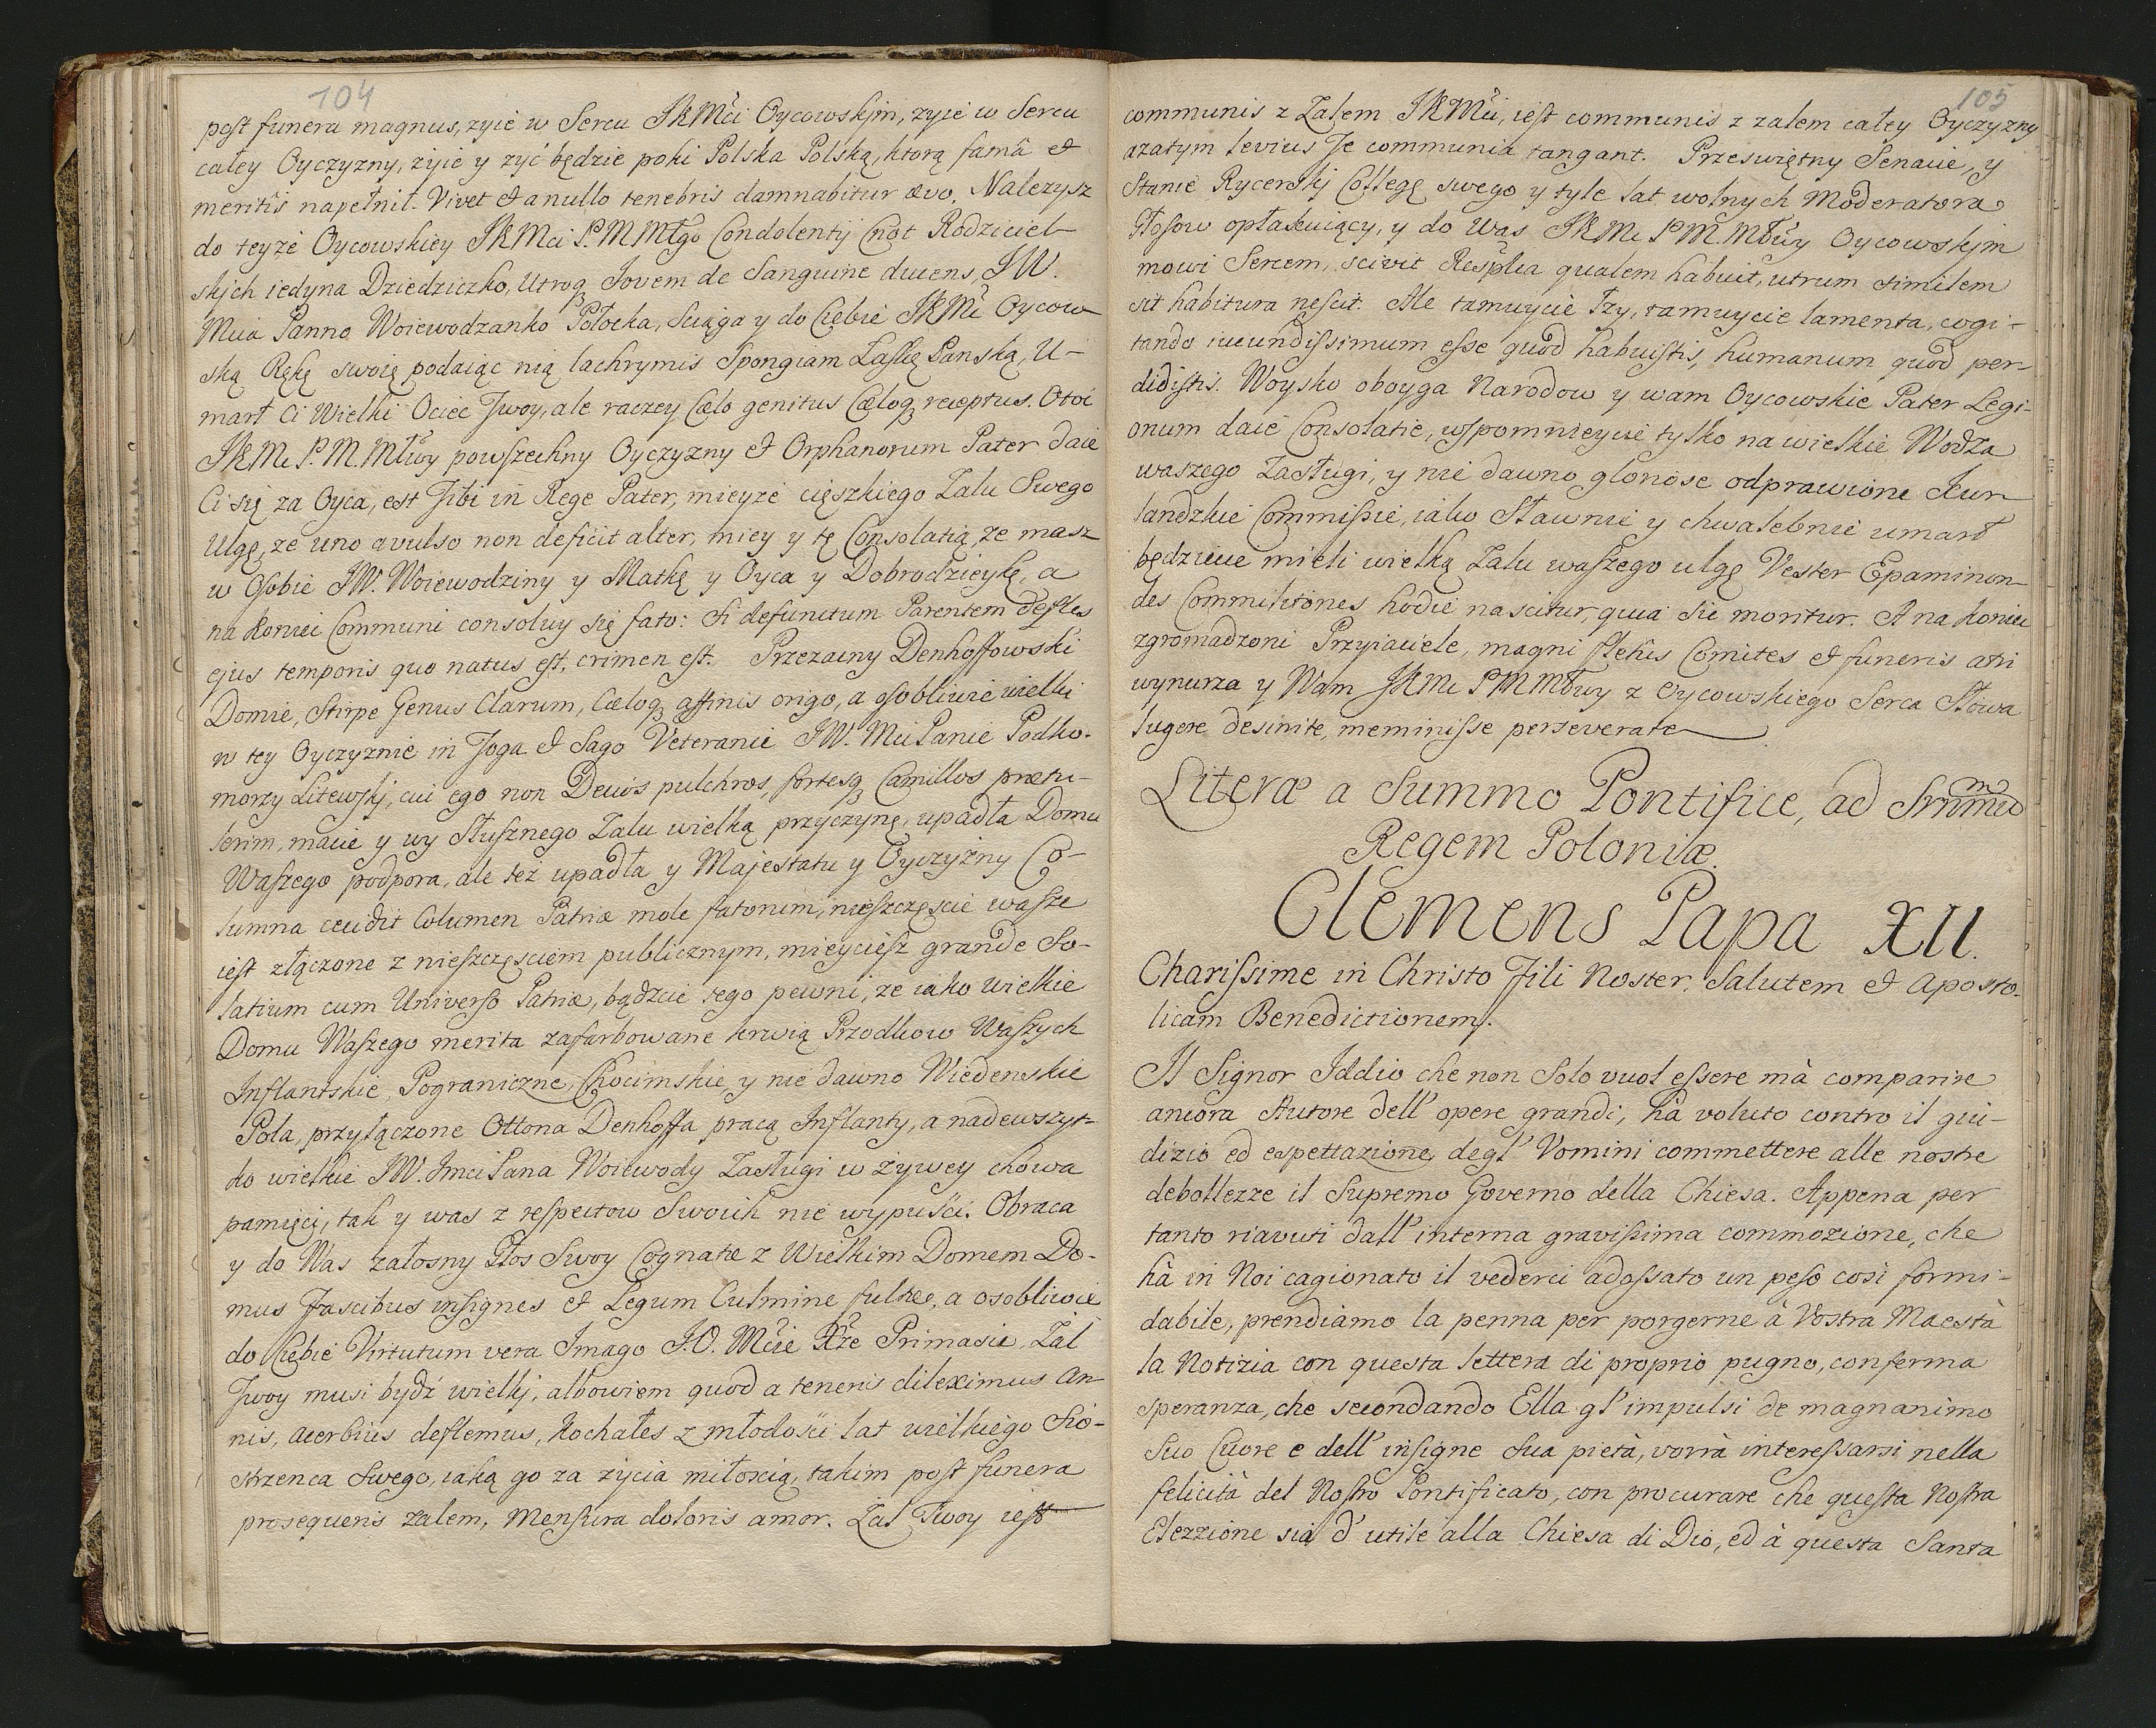 104
post funera magnus, zyie w Sercu JKMci Oycowskjm, zyie w Sercu
całey Oyczyzny, zyie y zyć będzie poki Polska Polską, ktorą famâ et
meritis napełnił. Vivet et a nullo tenebris damnabitur ævo. Nalezysz
do teyże Oycowskiey JKMci P.M.Młgo Condolentÿ Cnot Rodziciel-
skjch iedyna Dziedziczko, Utroq Jovem de Sanguine ducens, JW.
Mcia Panno Woiewodzanko Połocka, Sciąga y do Ciebie JKMć Oycow-
ską Rękę swoię podaiąc nią lachrymis Spongiam Łaskę Panską, U-
marł Ci Wielki Ociec Twoy, ale raczey Cælo genitus Cæloq receptus. Otoć
JKMć P.M.Młwy powszechny Oyczyzny et Orphanorum Pater daie
Ci się za Oyca, est Tibi in Rege Pater, mieyże cięszkiego Zalu Swego
Ulgę, ze uno avulso non deficit alter, miey y tę Consolatią, ze masz
w Osobie JW. Woiewodziny y Matkę y Oyca y Dobrodzieykę, a
na koniec Communi consoluy się fato: Si defunctum Parentem defles
ejus temporis quo natus est, crimen est. Przezacny Denhoffowski
Domie, Stirpe Genus Clarum, Cæloq affinis origo, a osobliwie wielki
w tey Oyczyznie in Toga et Sago Veteranie JW. Mci Panie Podko-
morzy Litewskj, cui ego non Decios pulchros, fortesq Camillos prætu-
lerim, macie y wy Słusznego Zalu wielką przyczynę, upadła Domu
Waszego podpora, ale też upadła y Majestatu y Oyczyzny Co-
lumna cecidit Columen Patriæ mole fatorum, nieszczęscie wasze
iest złączone z nieszczęsciem publicznym, mieycież grande So-
latium cum Universo Patriæ, bądzcie tego pewni, ze iako wielkie
Domu Waszego merita zafarbowane krwią Przodkow Waszych
Inflantskie, Pograniczne, Chocimskie, y nie dawno Wiedenskie
Pola, przyłączone Ottona Denhoffa pracą Inflanty, a nadewszyt-
ko wielkie JW. Jmci Pana Woiewody Zasługi w zywey chowa
pamięci, tak y was z respectow Swoich nie wypuści. Obraca
y do Was załosny Głos Swoy Cognatæ z Wielkim Domem Do-
mus Fascibus insignes et Legum Culmine fultæ, a osobliwie
do Ciebie Virtutum vera Imago J.O. Mcie Xże Primasie, Zal
Twoy musi bydź wielkj, albowiem quod a teneris dileximus an-
nis, acerbius deflemus, Kochałes z młodości lat wielkiego Sio-
strzenca Swego, iaką go za zycia miłoscią, takim post funera
prosequeris zalem, Mensura doloris amor. Zal Twoy iest
105
communis z Zalem JKMci, iest communis z zalem całey Oyczyzny
azatym levius Te communia tangant. Przeswiętny Senacie, y
Stanie Rycerskj Collegę swego y tyle lat wolnych Moderatora
Głosow opłakuiący, y do Was JKMć P.M.Młwy Oycowskjm
mowi Sercem, scivit Resplca qualem habuit, utrum similem
sit habitura nescit. Ale tamuycie łzy, tamuycie lamenta, cogi-
tando iucundissimum esse quod habuistis, humanum quod per-
didistis. Woysko oboyga Narodow y wam Oycowskie Pater Legi-
onum daie Consolatie, wspomnieycie tylko na wielkie Wodza
waszego Zasługi, y nie dawno gloriose odprawione Kur-
landzkie Commissie, iako Sławnie y chwalebnie umarł
będziecie mieli wielką Zalu waszego ulgę Vester Epaminon-
des Commilitones hodie nascitur, quia sic moritur. A na koniec
zgromadzoni Przyiaciele, magni fletus Comites et funeris atri
wynurza y Wam JKMć P.M.Młwy z Oycowskiego Serca Słowa
lugere desinite, meminisse perseverate
Literæ a Summo Pontifice, ad Srnmum
Regem Poloniæ.
Clemens Papa XII.
Charissime in Christo Fili Noster, Salutem et Aposto-
licam Benedictionem.
Il Signor Iddio che non Solo vuol essere mà comparire
ancora Autore dell' opere grandi, hà voluto contro il giu-
dizio ed espettazione degl' Vomini commettere alle nostre
debollezze il Supremo Governo della Chiesa. Appena per
tanto riavuti dall' interna gravissima commozione, che
hà in Noi cagionato il vederci adossato un peso così formi-
dabile, prendiamo la penna per porgerne à Vostra Maestà
la Notizia con questa lettera di proprio pugno, con ferma
speranza, che secondando Ella gl' impulsi de magnanimo
Suo Cuore e dell' insigne Sua pietà, vorrà interessarsi nella
felicità del Nostro Pontificato, con procurare che questa Nostra
Elezzione sia d' utile alla Chiesa di Dio, ed à questa Santa